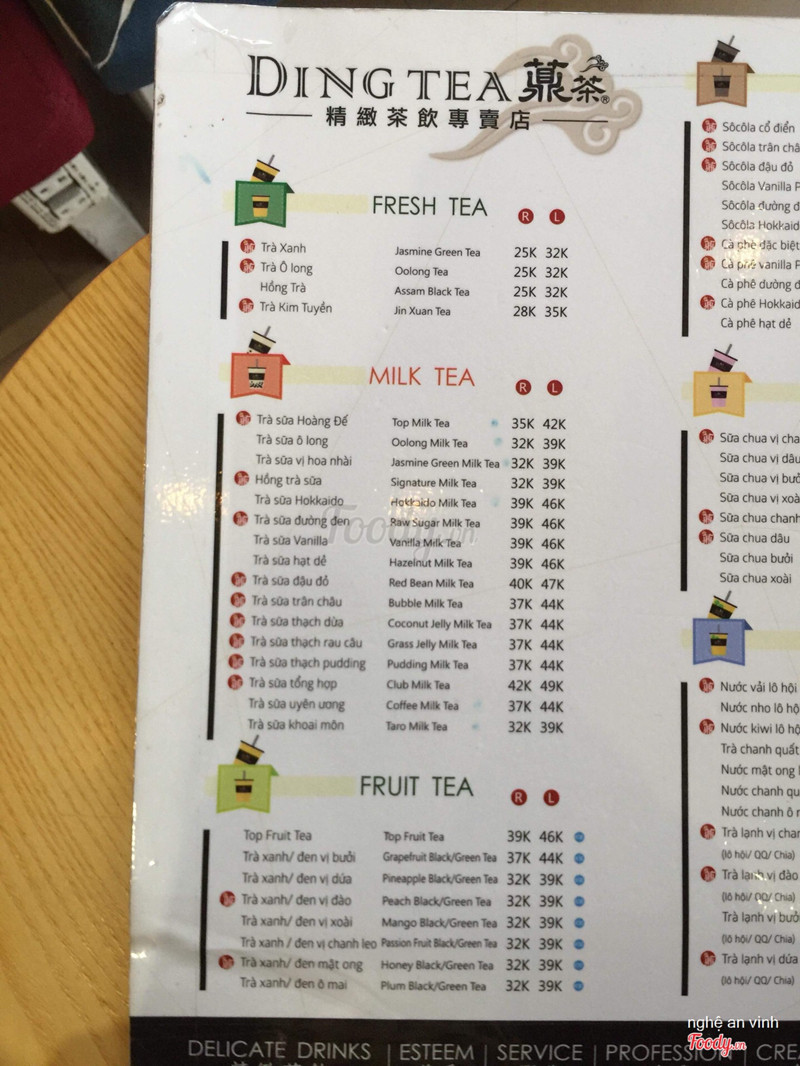 DING TEA 薡茶®
精緻茶飲專賣店
FRESH TEA R L
Trà Xanh Jasmine Green Tea 25K 32K
Trà Ô long Oolong Tea 25K 32K
Hồng Trà Assam Black Tea 25K 32K
Trà Kim Tuyền Jin Xuan Tea 28K 35K
MILK TEA R L
Trà sữa Hoàng Đế Top Milk Tea 35K 42K
Trà sữa ô long Oolong Milk Tea 32K 39K
Trà sữa vị hoa nhài Jasmine Green Milk Tea 32K 39K
Hồng trà sữa Signature Milk Tea 32K 39K
Trà sữa Hokkaido Hokkaido Milk Tea 39K 46K
Trà sữa đường đen Raw Sugar Milk Tea 39K 46K
Trà sữa Vanilla Vanilla Milk Tea 39K 46K
Trà sữa hạt dẻ Hazelnut Milk Tea 39K 46K
Trà sữa đậu đỏ Red Bean Milk Tea 40K 47K
Trà sữa trân châu Bubble Milk Tea 37K 44K
Trà sữa thạch dừa Coconut Jelly Milk Tea 37K 44K
Trà sữa thạch rau câu Grass Jelly Milk Tea 37K 44K
Trà sữa thạch pudding Pudding Milk Tea 37K 44K
Trà sữa tổng hợp Club Milk Tea 42K 49K
Trà sữa uyên ương Coffee Milk Tea 37K 44K
Trà sữa khoai môn Taro Milk Tea 32K 39K
FRUIT TEA R L
Top Fruit Tea Top Fruit Tea 39K 46K
Trà xanh/ đen vị bưởi Grapefruit Black/Green Tea 37K 44K
Trà xanh/ đen vị dứa Pineapple Black/Green Tea 32K 39K
Trà xanh/ đen vị đào Peach Black/Green Tea 32K 39K
Trà xanh/ đen vị xoài Mango Black/Green Tea 32K 39K
Trà xanh / đen vị chanh leo Passion Fruit Black/Green Tea 32K 39K
Trà xanh/ đen mật ong Honey Black/Green Tea 32K 39K
Trà xanh/ đen ô mai Plum Black/Green Tea 32K 39K
Sôcôla cổ điển
Sôcôla trân châ
Sôcôla đậu đỏ
Sôcôla Vanilla
Sôcôla đường đ
Sôcôla Hokkaid
Cà phê đặc biệt
Cà phê vanilla
Cà phê đường đ
Cà phê Hokkaid
Cà phê hạt dẻ
Sữa chua vị cha
Sữa chua vị dâu
Sữa chua vị bưở
Sữa chua vị xoà
Sữa chua chanh
Sữa chua dâu
Sữa chua bưởi
Sữa chua xoài
Nước vải lô hội
Nước nho lô hộ
Nước kiwi lô hộ
Trà chanh quất
Nước mật ong
Nước chanh qu
Nước chanh ô
Trà lạnh vị chan
(lô hội/ QQ/ Chia)
Trà lạnh vị đào
(lô hội/ QQ/ Chia)
Trà lạnh vị bưở
(lô hội/ QQ/ Chia)
Trà lạnh vị dứa
(lô hội/ QQ/ Chia)
DELICATE DRINKS | ESTEEM | SERVICE | PROFESSION | CRE
Foody.vn
nghệ an vinh
Foody.vn